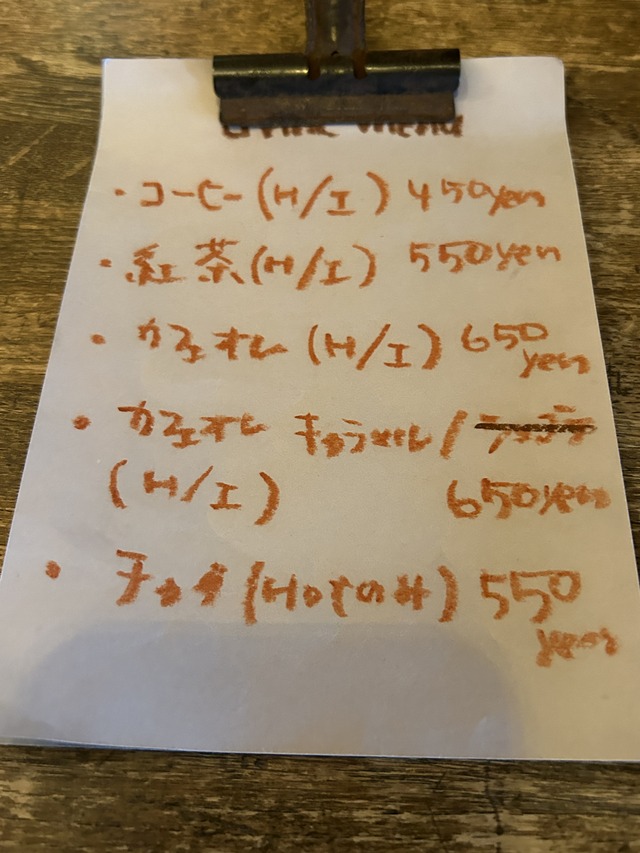 Drink menu
・コーヒー(H/I) 450yen
・紅茶(H/I) 550yen
・カフェオレ(H/I) 650
yen
・カフェオレ キャラメル/
(H/I) 650yen
・(Hotのみ) 550
yen